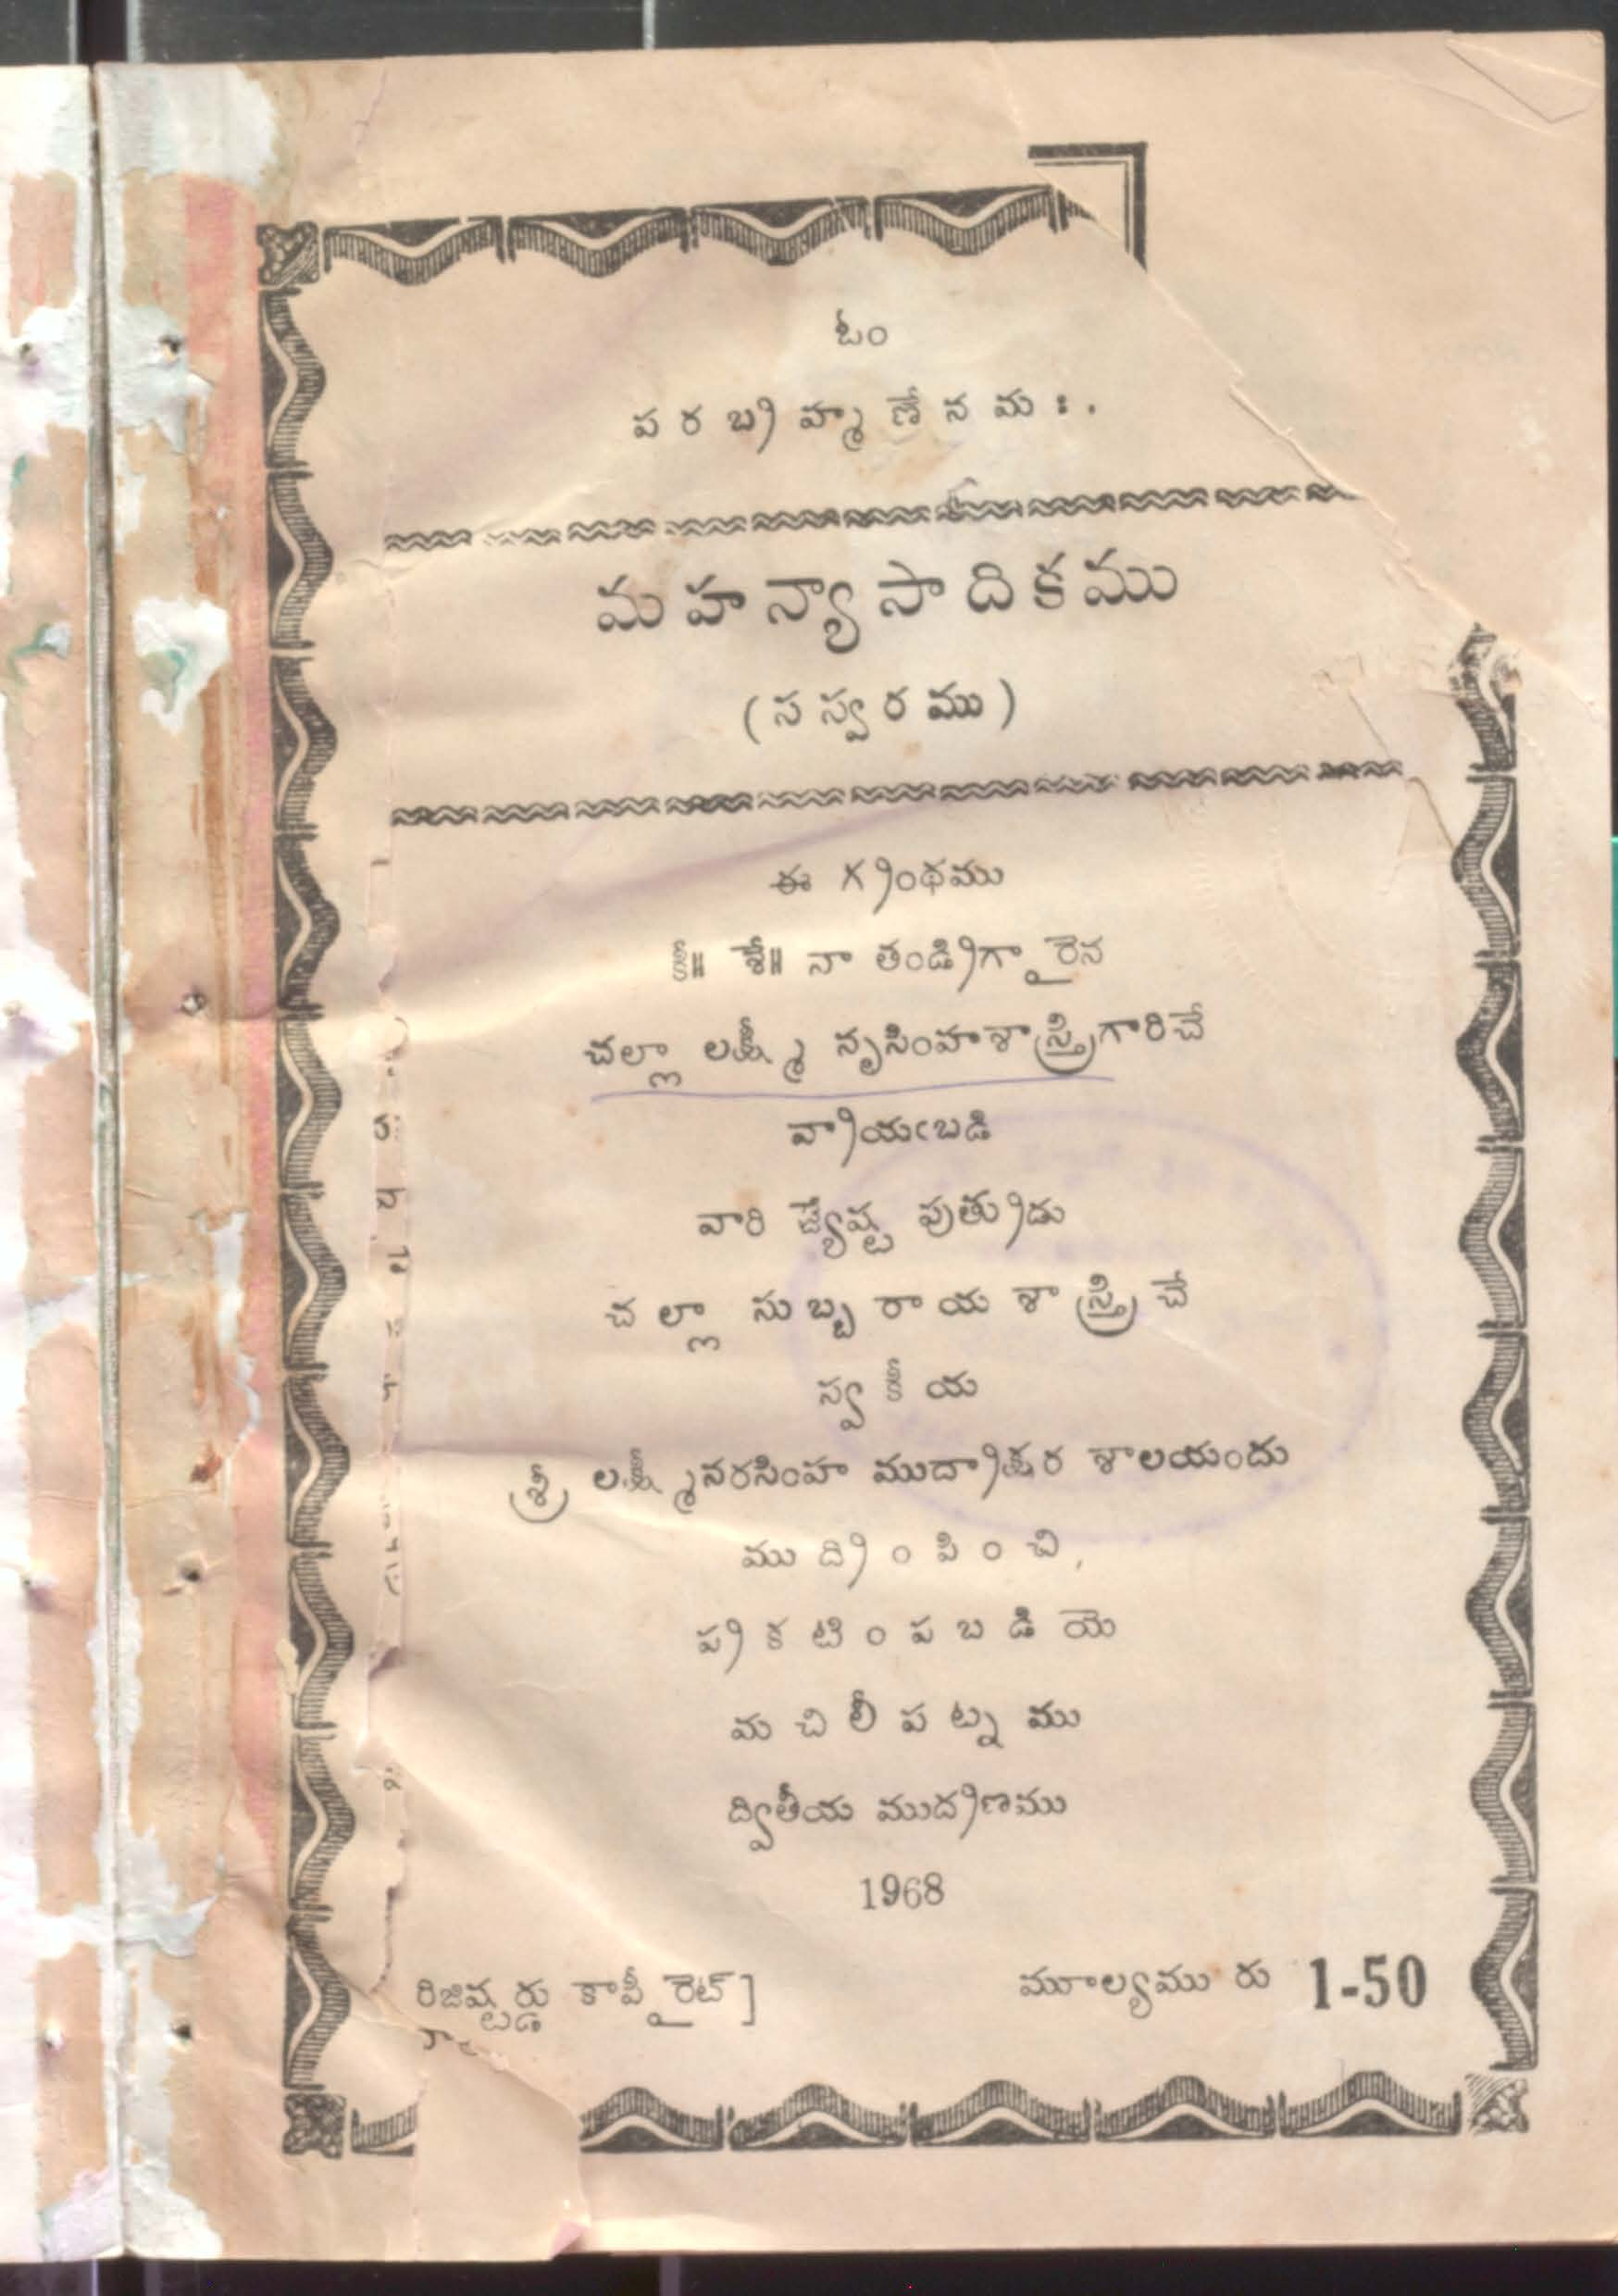 ఓం
పరబ్రహ్మణేనమః.
మహన్యాసాదికము
(సస్వరము)
ఈ గ్రంథము
కీ॥ శే॥ నా తండ్రిగారైన
చల్లా లక్ష్మీ నృసింహశాస్త్రిగారిచే
వ్రాయఁబడి
వారి జ్యేష్ట పుత్రుడు
చల్లా సుబ్బరాయశాస్త్రిచే
స్వకీయ
శ్రీ లక్ష్మీనరసింహ ముద్రాక్షర శాలయందు
ముద్రింపించి,
ప్రకటింపబడియె
మచిలీపట్నము
ద్వితీయ ముద్రణము
1968
రిజిష్టర్డు కాపీరైట్]
మూల్యము రు 1-50